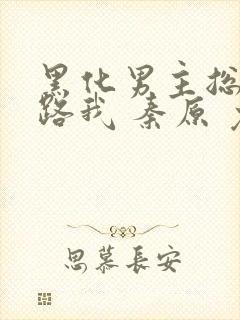 黑化男主总
路我 秦原
思慕長安